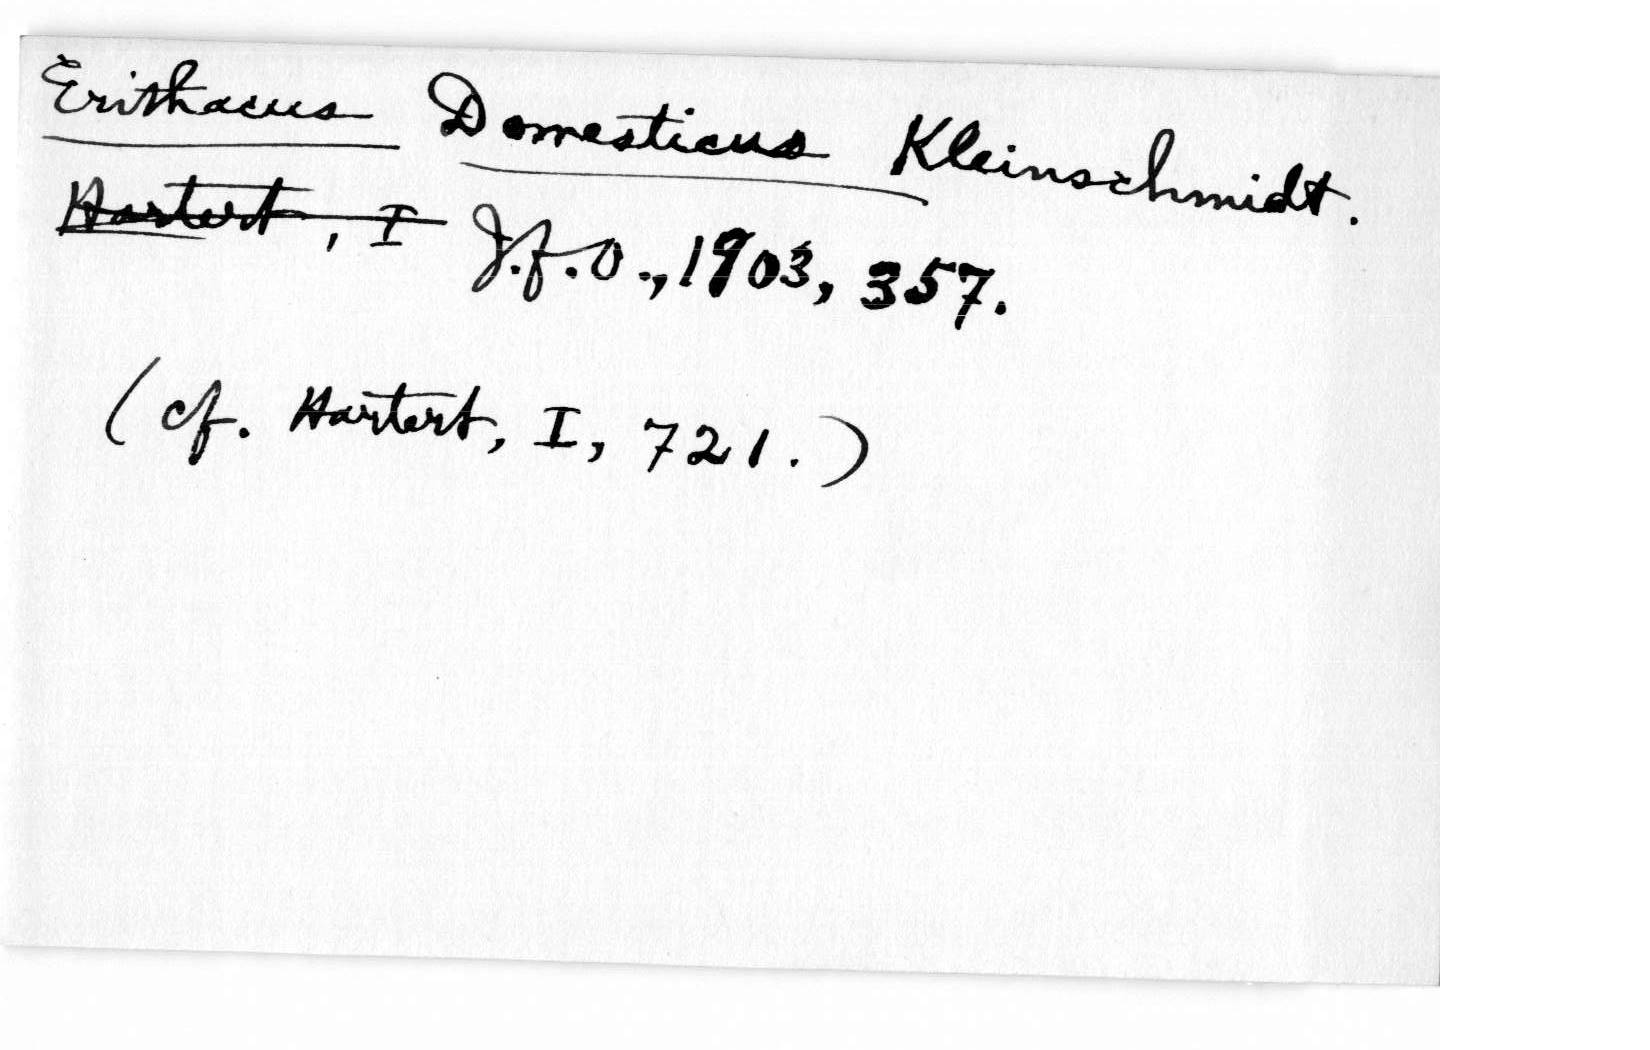 Erithacus Domesticus Kleinschmidt.
Hartert, I J.f.O., 1903, 357.
(cf. Hartert, I, 721.)